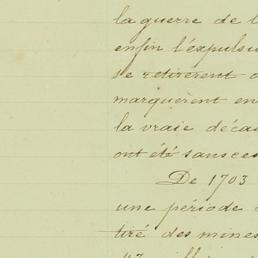 la guerre de l
enfin l'expuls
se retirèrent
marquèrent en
la vraie déca
ont été sans ces
De 1703
une période
tiré des mines